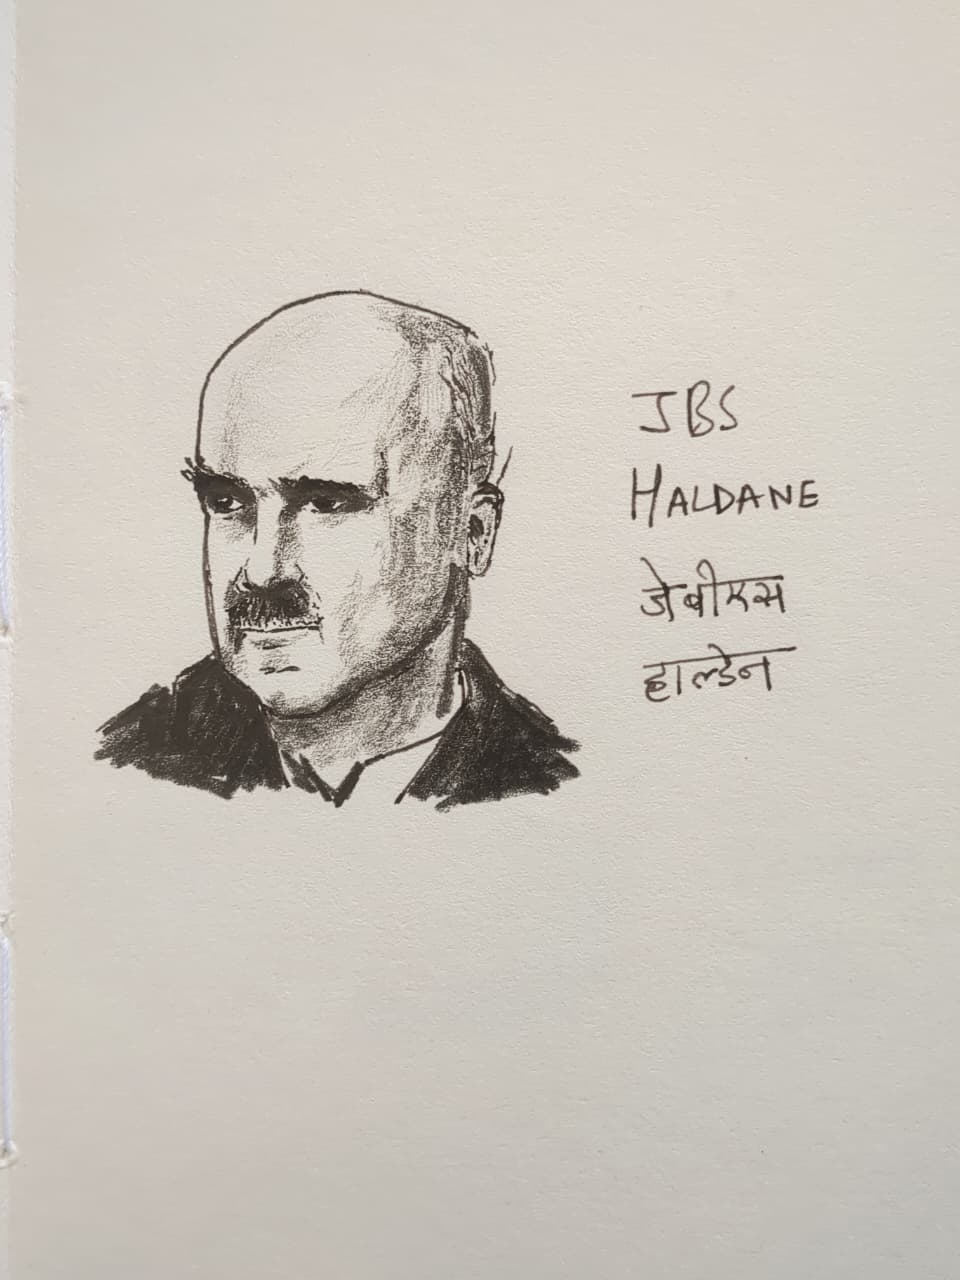 JBS
HALDANE
जेबीएस
हाल्डेन